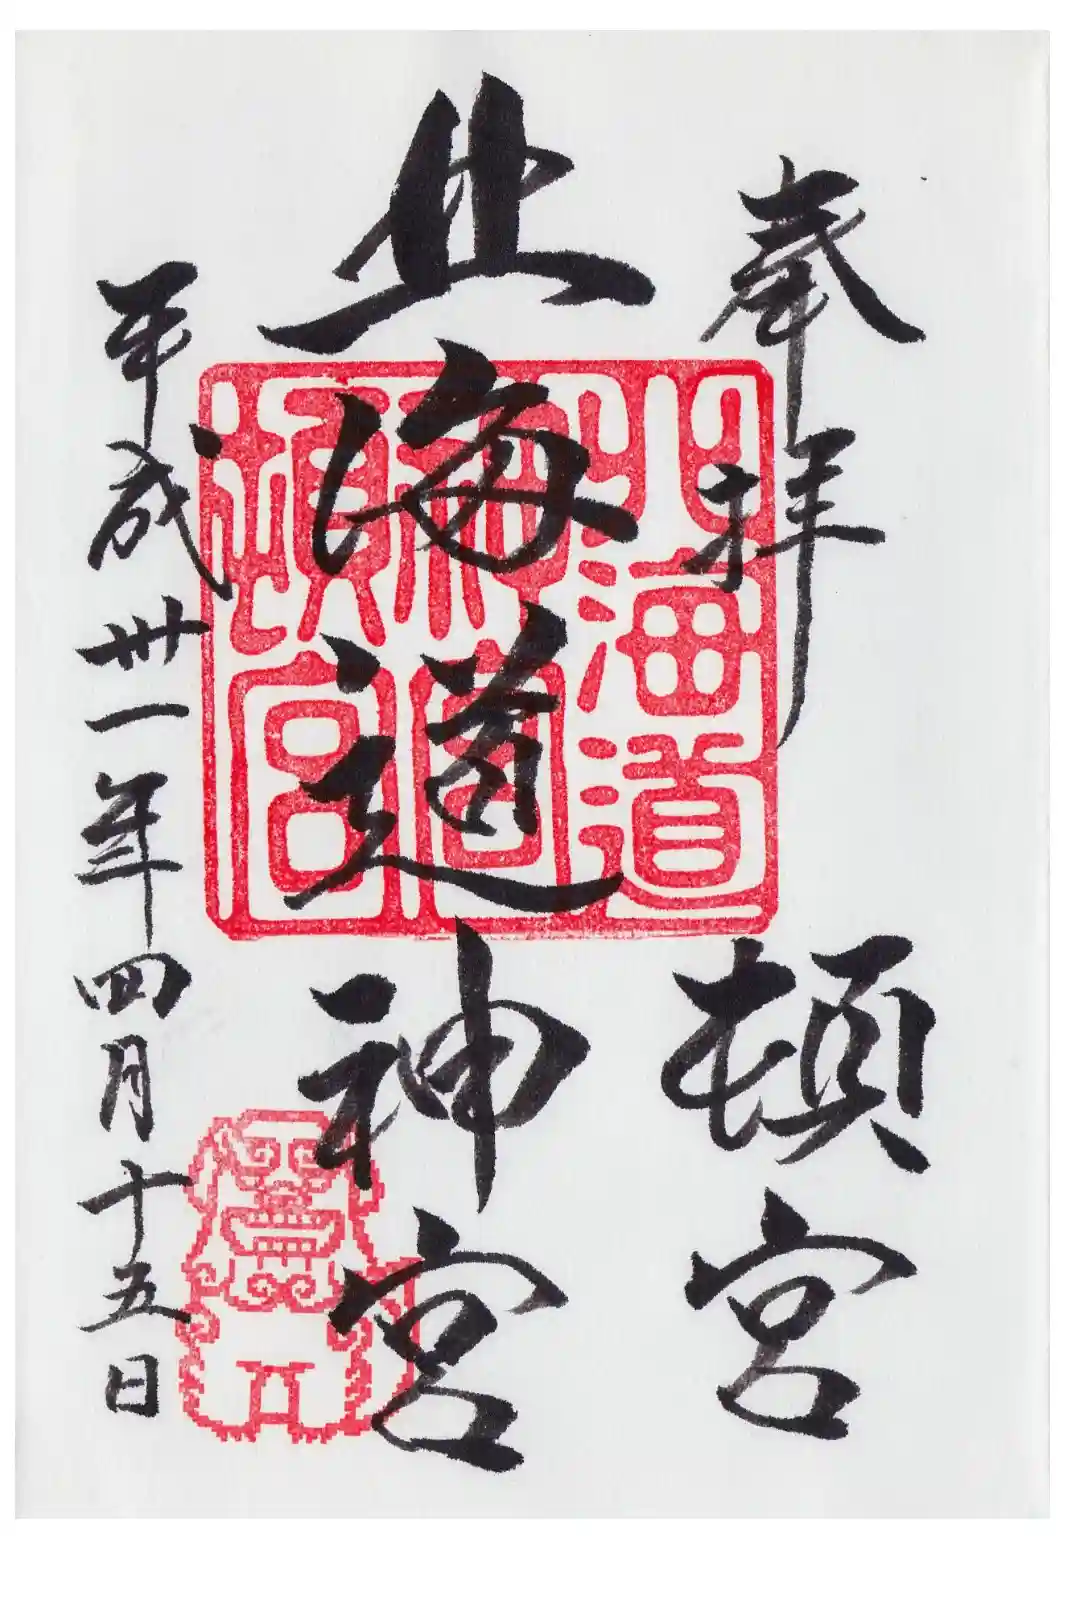 奉拝
頓宮
北海道神宮
平成卅一年四月十五日
北海道
神宮
頓宮